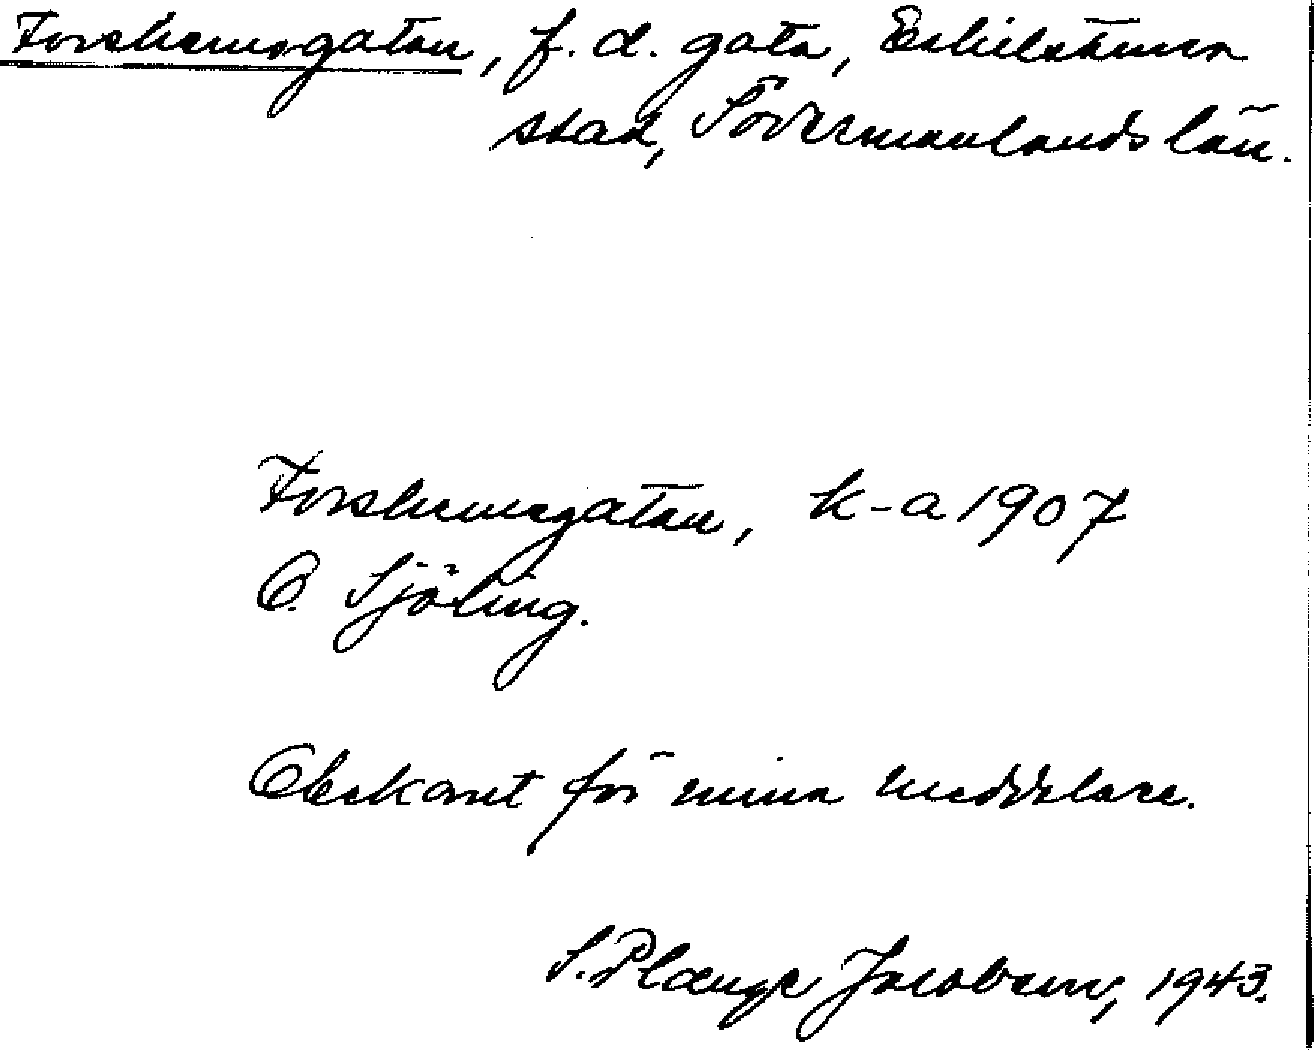 Forshemsgatan, f. d. gata, Eskilstuna
stad, Södermanlands län.
Forshemsgatan, k-a 1907
O. Sjöling.
Obekant för mina meddelare.
S. Plænge Jacobson, 1943.